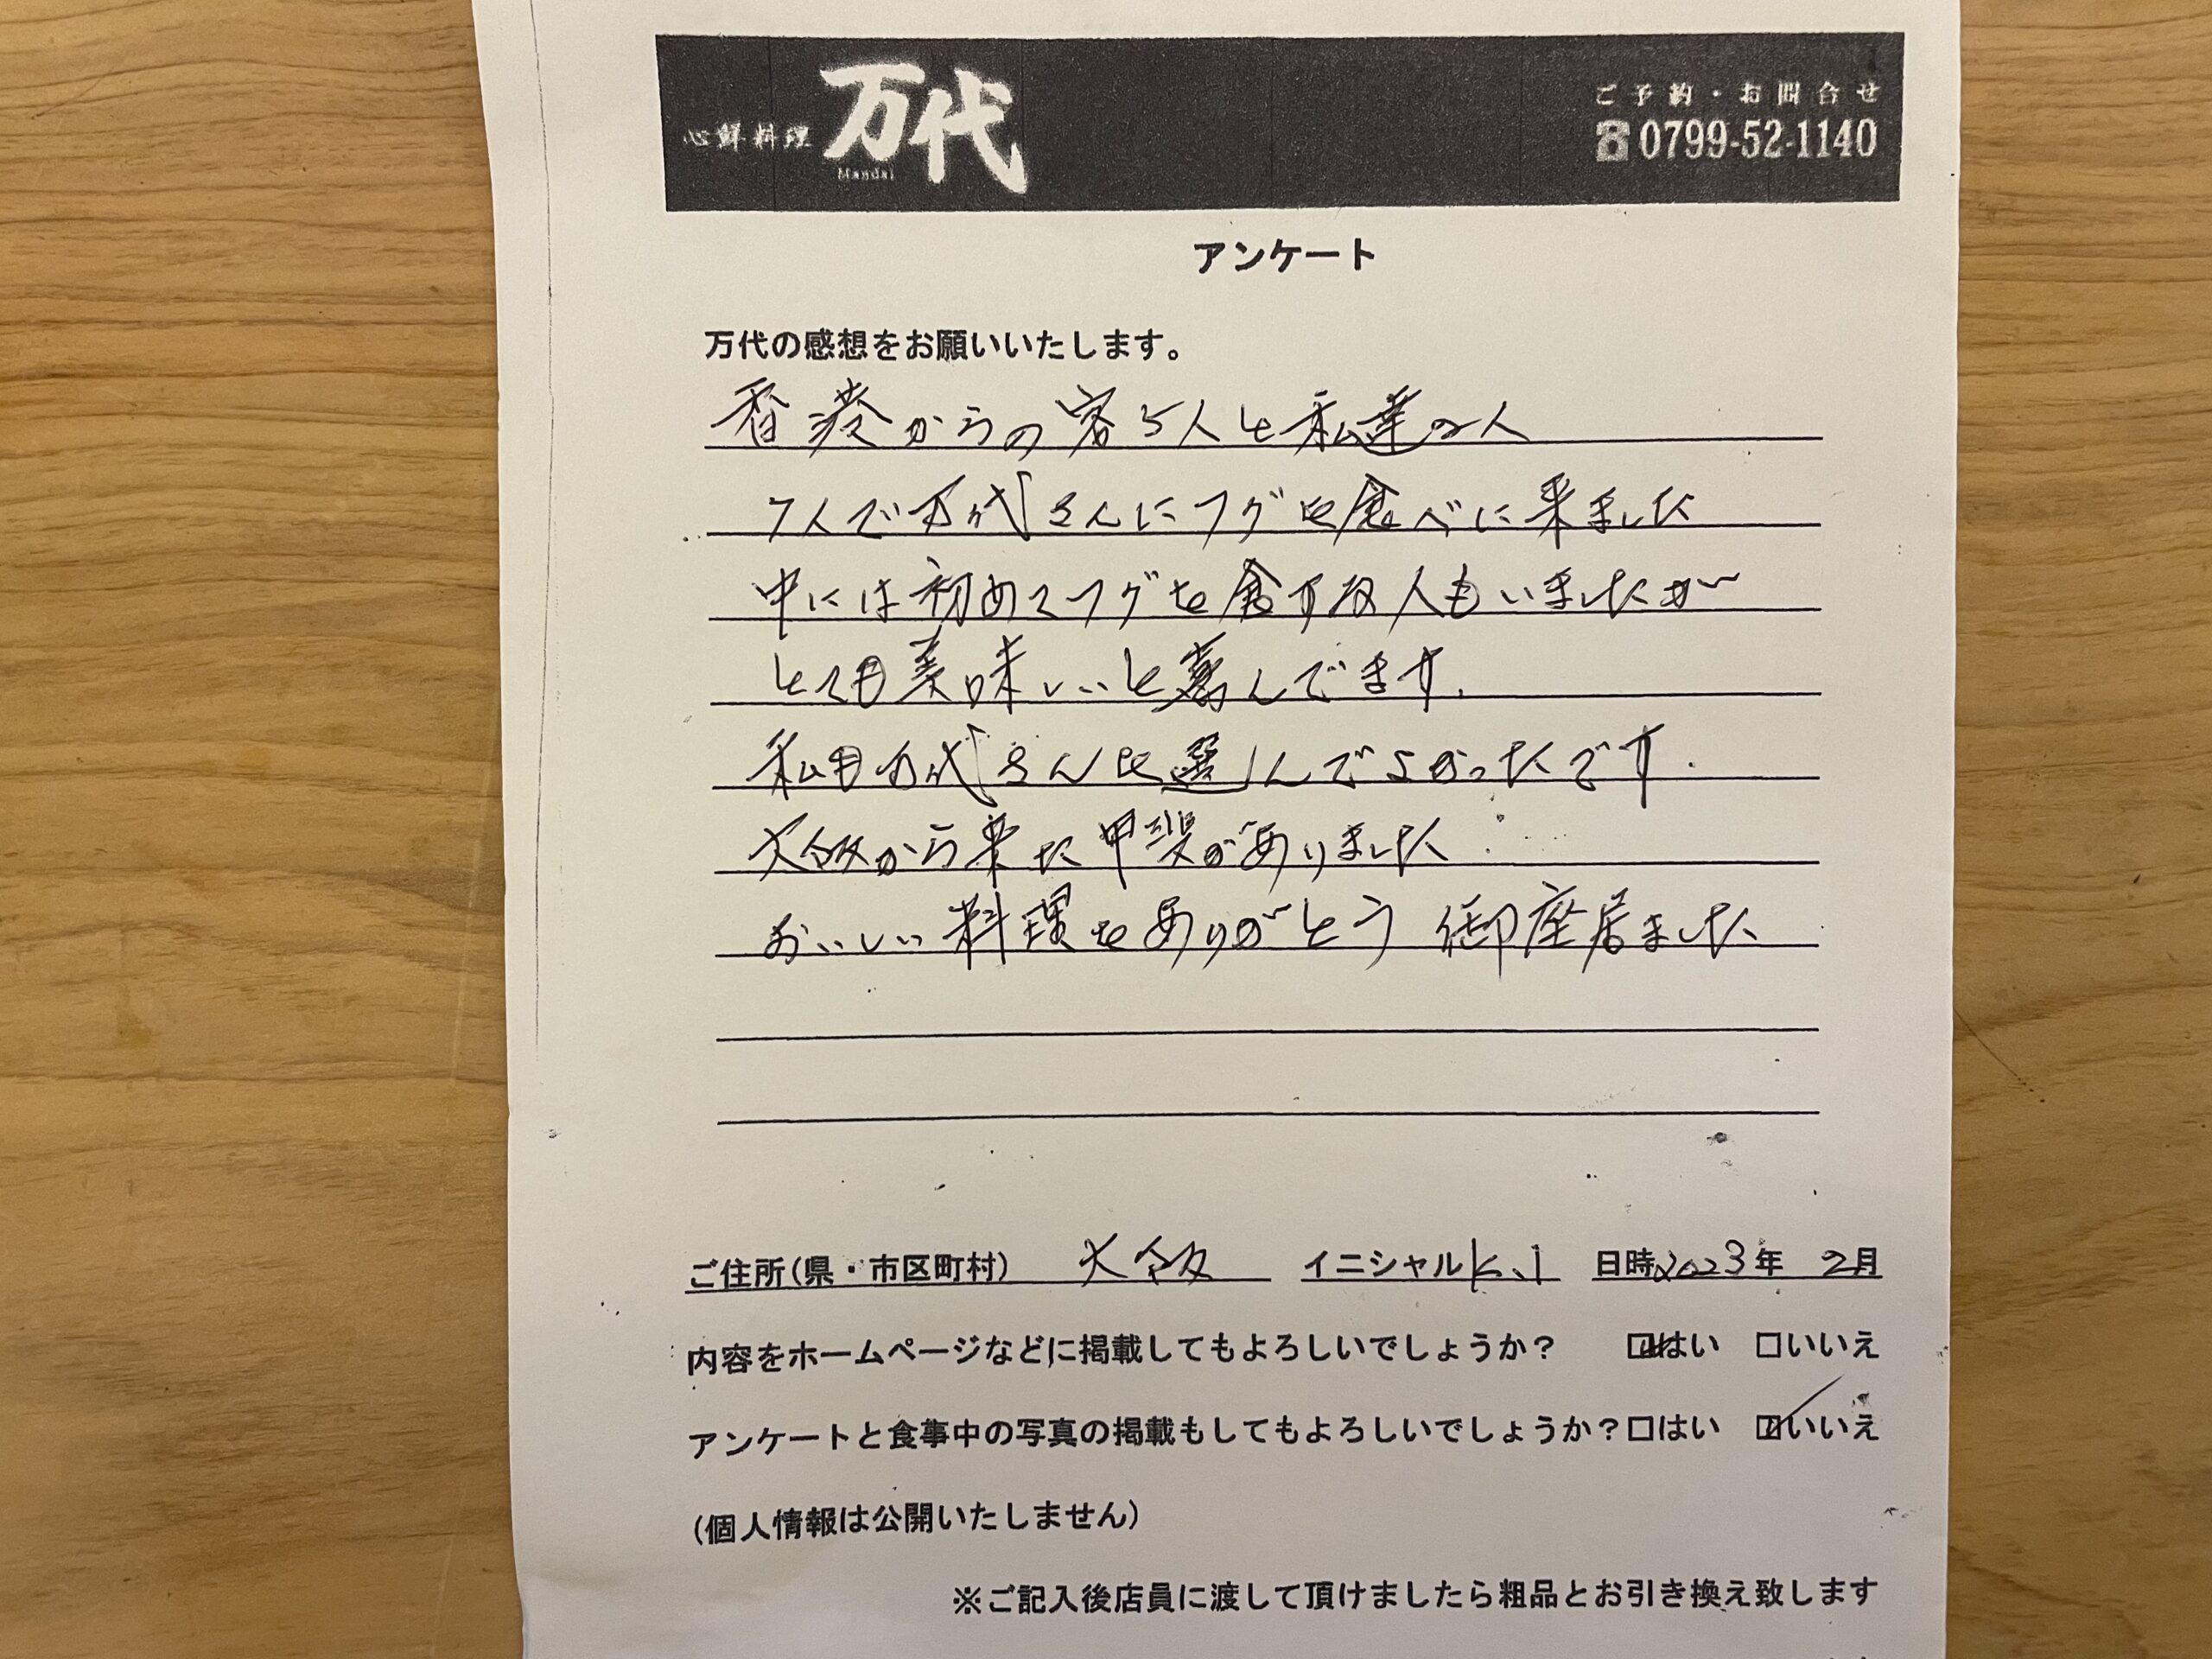 心鮮料理 万代
Mandai
ご予約・お問合せ
☎0799-52-1140
アンケート
万代の感想をお願いいたします。
香港からの客5人と私達2人
7人で万代さんにフグを食べに来ました
中には初めてフグを食する人もいましたが
とても美味しいと喜んでます.
私も万代さんを選んでよかったです.
大飯から来た甲斐がありました.
おいしい料理をありがとう御座居ました
ご住所(県・市区町村) 大飯 イニシャル K.I 日時2023年 2月
内容をホームページなどに掲載してもよろしいでしょうか? ☑はい □いいえ
アンケートと食事中の写真の掲載もしてもよろしいでしょうか?□はい ☑いいえ
(個人情報は公開いたしません)
※ご記入後店員に渡して頂けましたら粗品とお引き換え致します